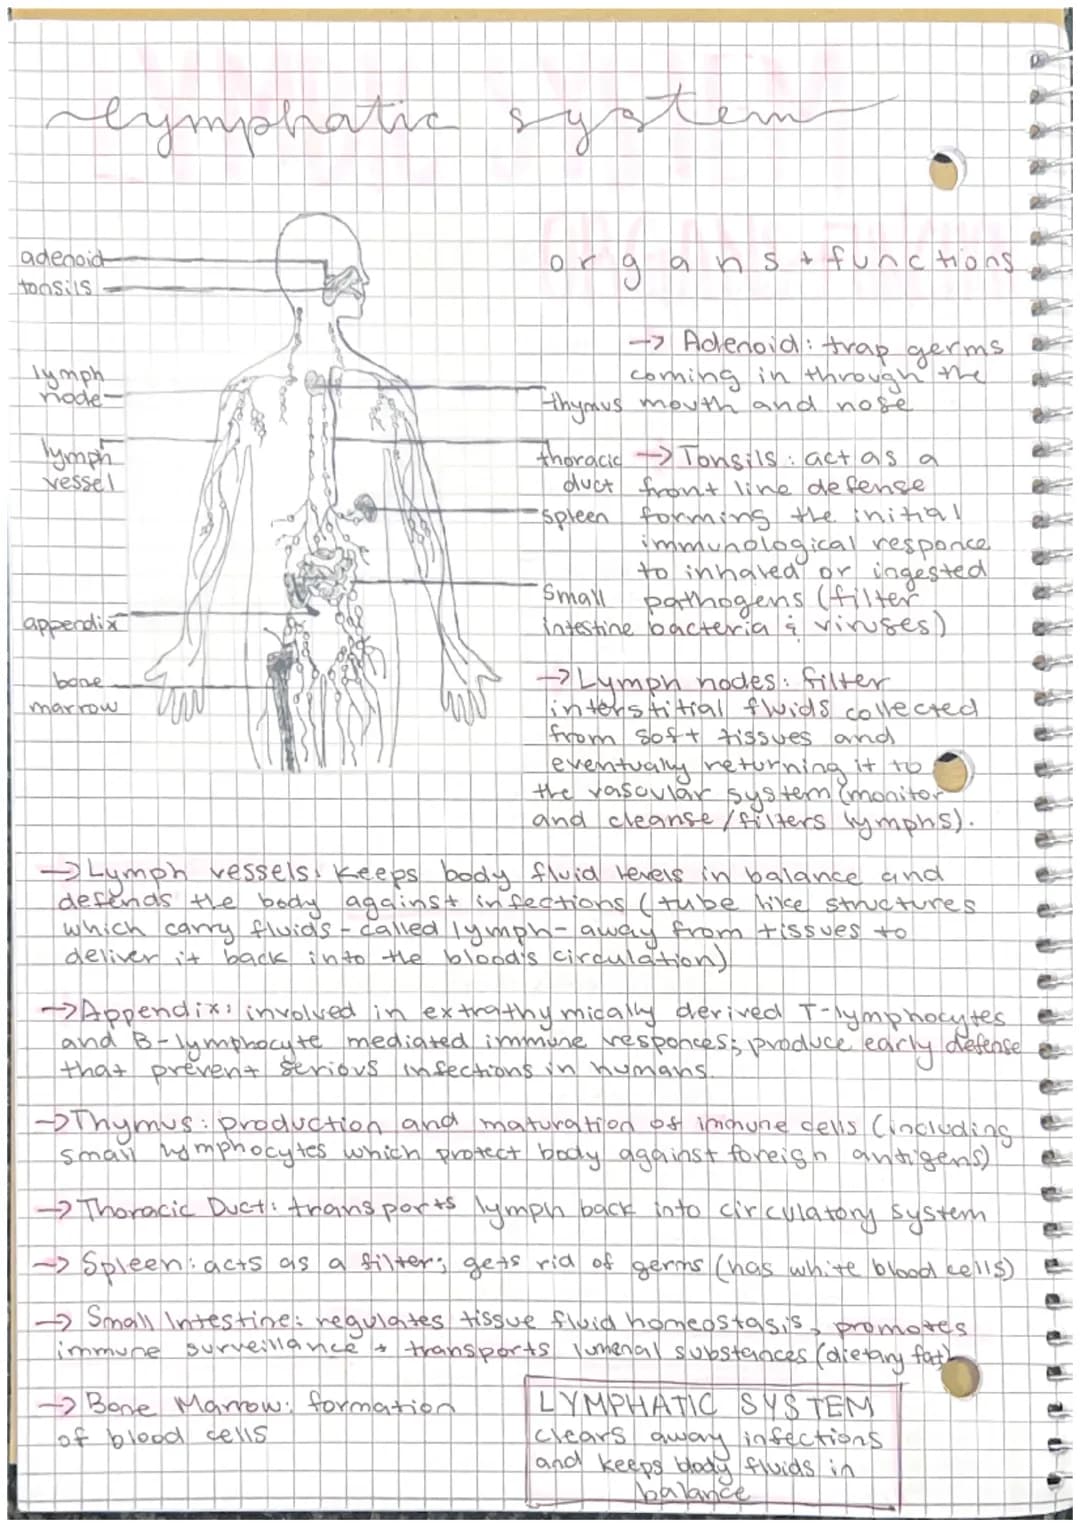 lymphatic system
organs + functions
adenoid
tonsils
lymph
node
lymph
vessel
appendix
bone
marrow
thymus
thoracic
duct
spleen
small
intestine
→ Adenoid: trap germs
coming in through the
mouth and nose
→ Tonsils: act as a
front line defense
forming the initial
immunological responce
to inhaled or ingested
pathogens (filter
bacteria & viruses)
→ Lymph nodes: filter
interstitial fluids collected
from soft tissues and
eventually returning it to
the vascular system (monitor
and cleanse/filters lymphs).
→ Lymph vessels: keeps body fluid levels in balance and
defends the body against infections (tube like structures
which carry fluids - called lymph - away from tissues to
deliver it back into the blood's circulation)
→ Appendix: involved in extrathymically derived T-lymphocytes
and B-lymphocyte mediated immune responces; produce early defense
that prevent serious infections in humans.
→ Thymus: production and maturation of immune cells (including
small lymphocytes which protect body against foreign antigens)
→ Thoracic Duct: transports lymph back into circulatory system
→ Spleen: acts as a filter; gets rid of germs (has white blood cells)
→ Small Intestine: regulates tissue fluid homeostasis, promotes
immune surveillance + transports lumenal substances (dietary fat)
→ Bone Marrow: formation
of blood cells
LYMPHATIC SYSTEM
clears away infections
and keeps body fluids in
balance